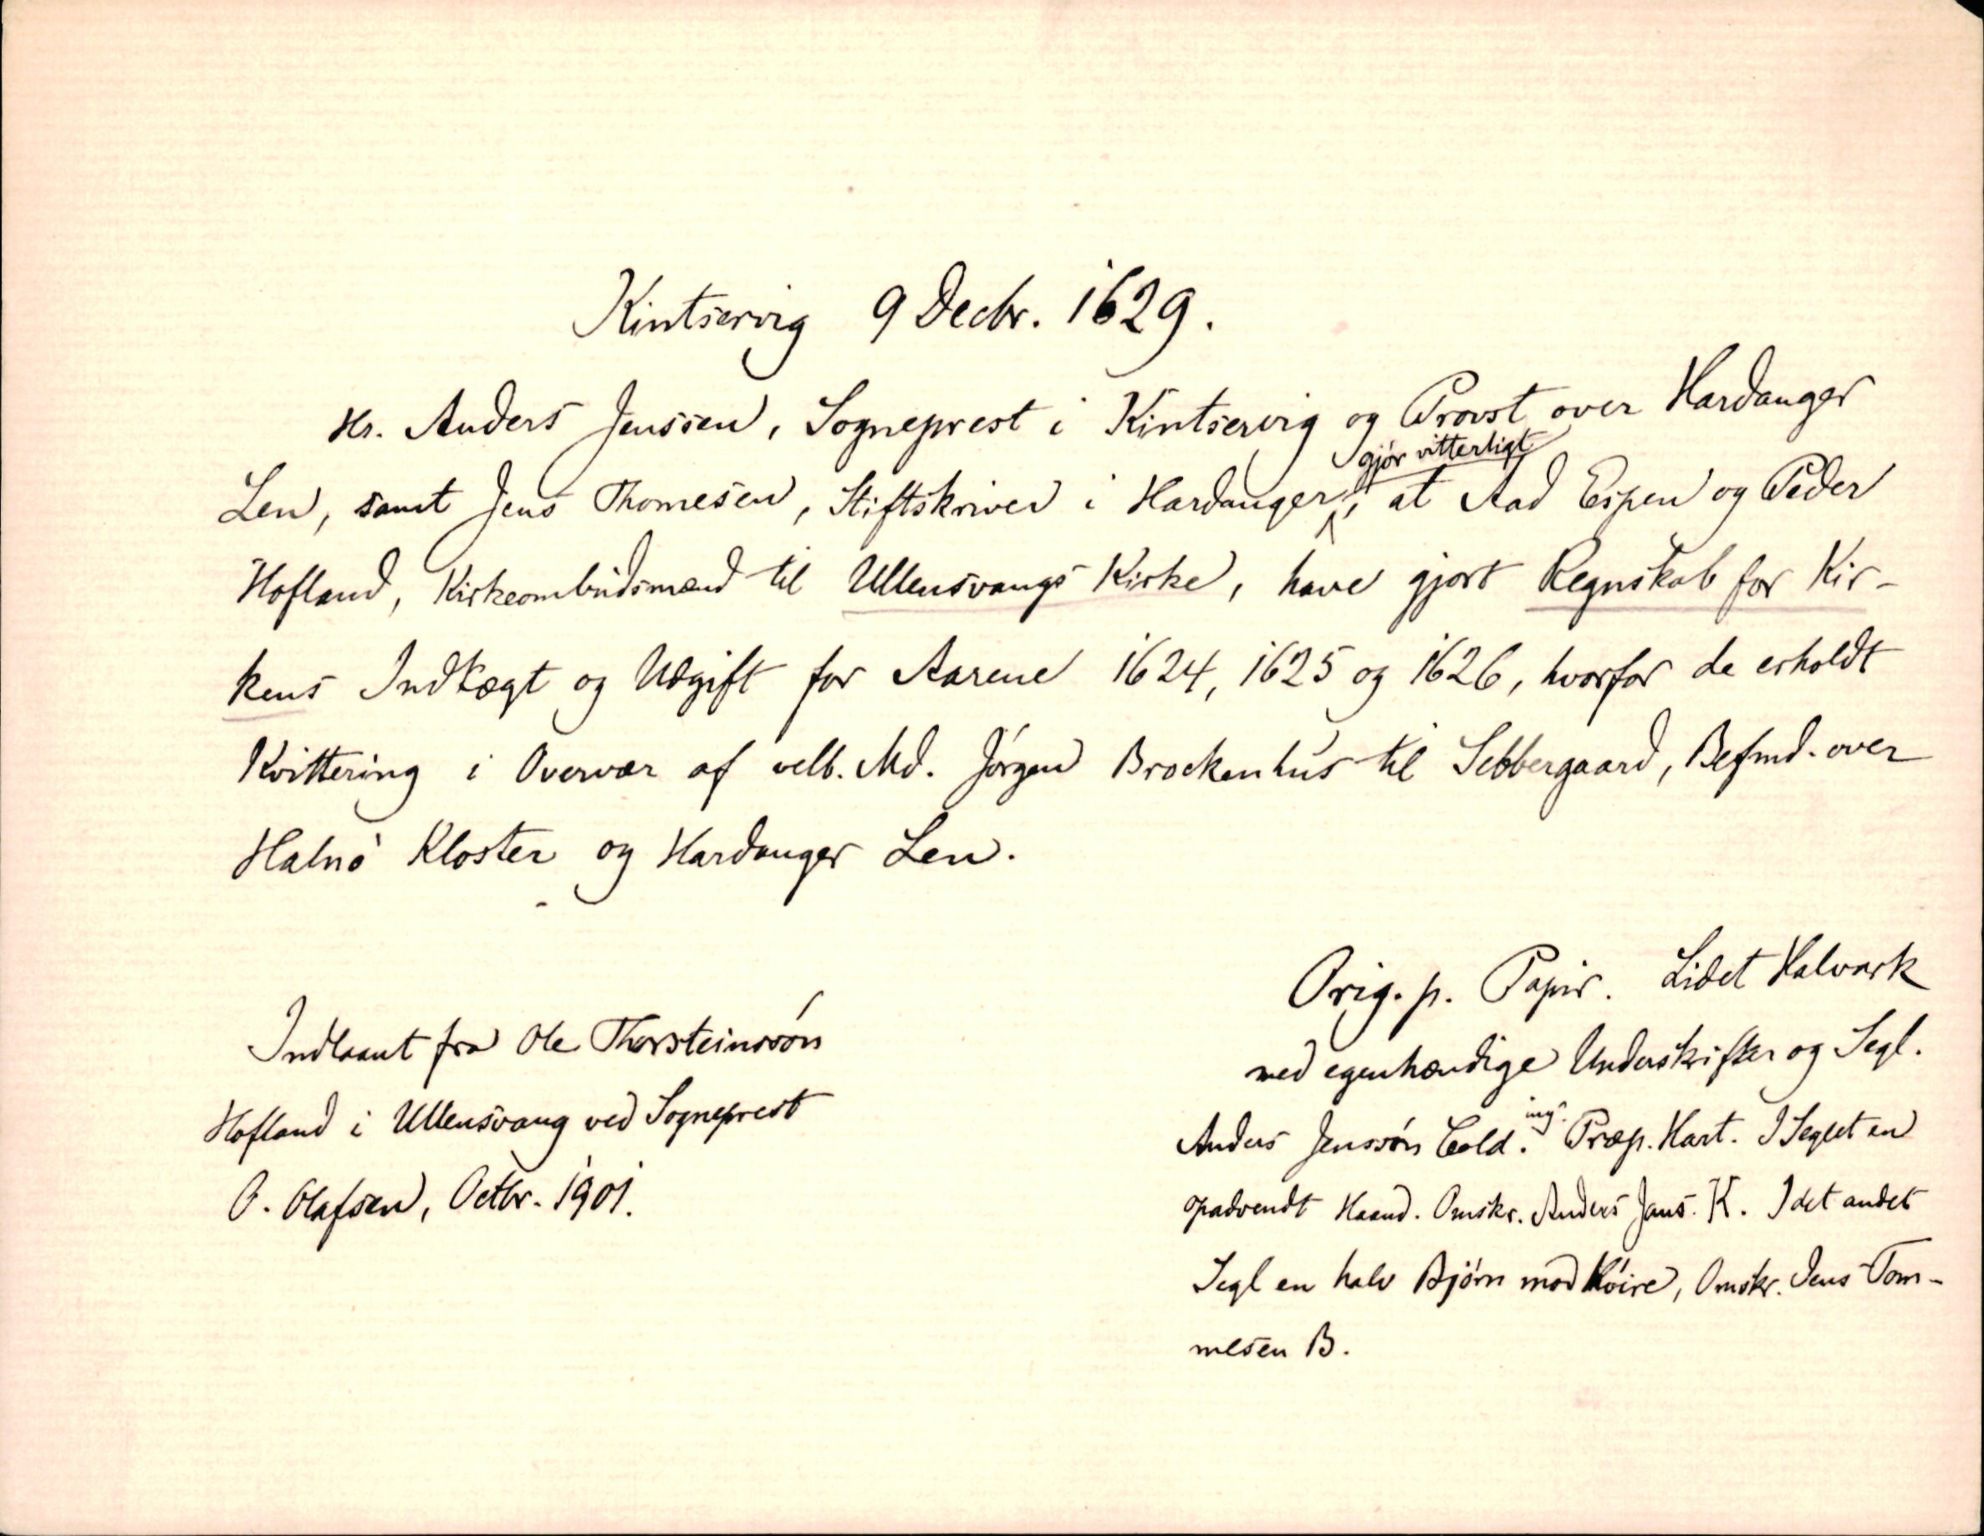 Kintservig 9 Decbr. 1629.
Hr. Anders Jenssen, Sogneprest i Kintservig og Provst over Hardanger
gjør vitterligt
Len, samt Jens Thomesen, Stiftskriver i Hardanger, at Aad Espen og Peder
Hofland, Kirkeombudsmænd til Ullensvangs Kirke, have gjort Regnskab for Kir-
kens Indtægt og Udgift for Aarene 1624, 1625 og 1626, hvorfor de erholdt
Kvittering i Overvær af velb. Md. Jørgen Brockenhus til Sebbergaard, Befmd. over
Halsnø Kloster og Hardanger Len.
Orig. p. Papir. Lidet Halvark
med egenhændige Underskrifter og Segl.
Anders Jenssøn Cold. Præp. Hart. I Seglet en
opadvendt Haand. Omskr. Anders Jans. K. I det andet
Segl en halv Bjørn mod Høire, Omskr. Jens Tom-
mesen B.
Indlaant fra Ole Thorsteinssøn
Hofland i Ullensvang ved Sogneprest
O. Olafsen, Octbr. 1901.